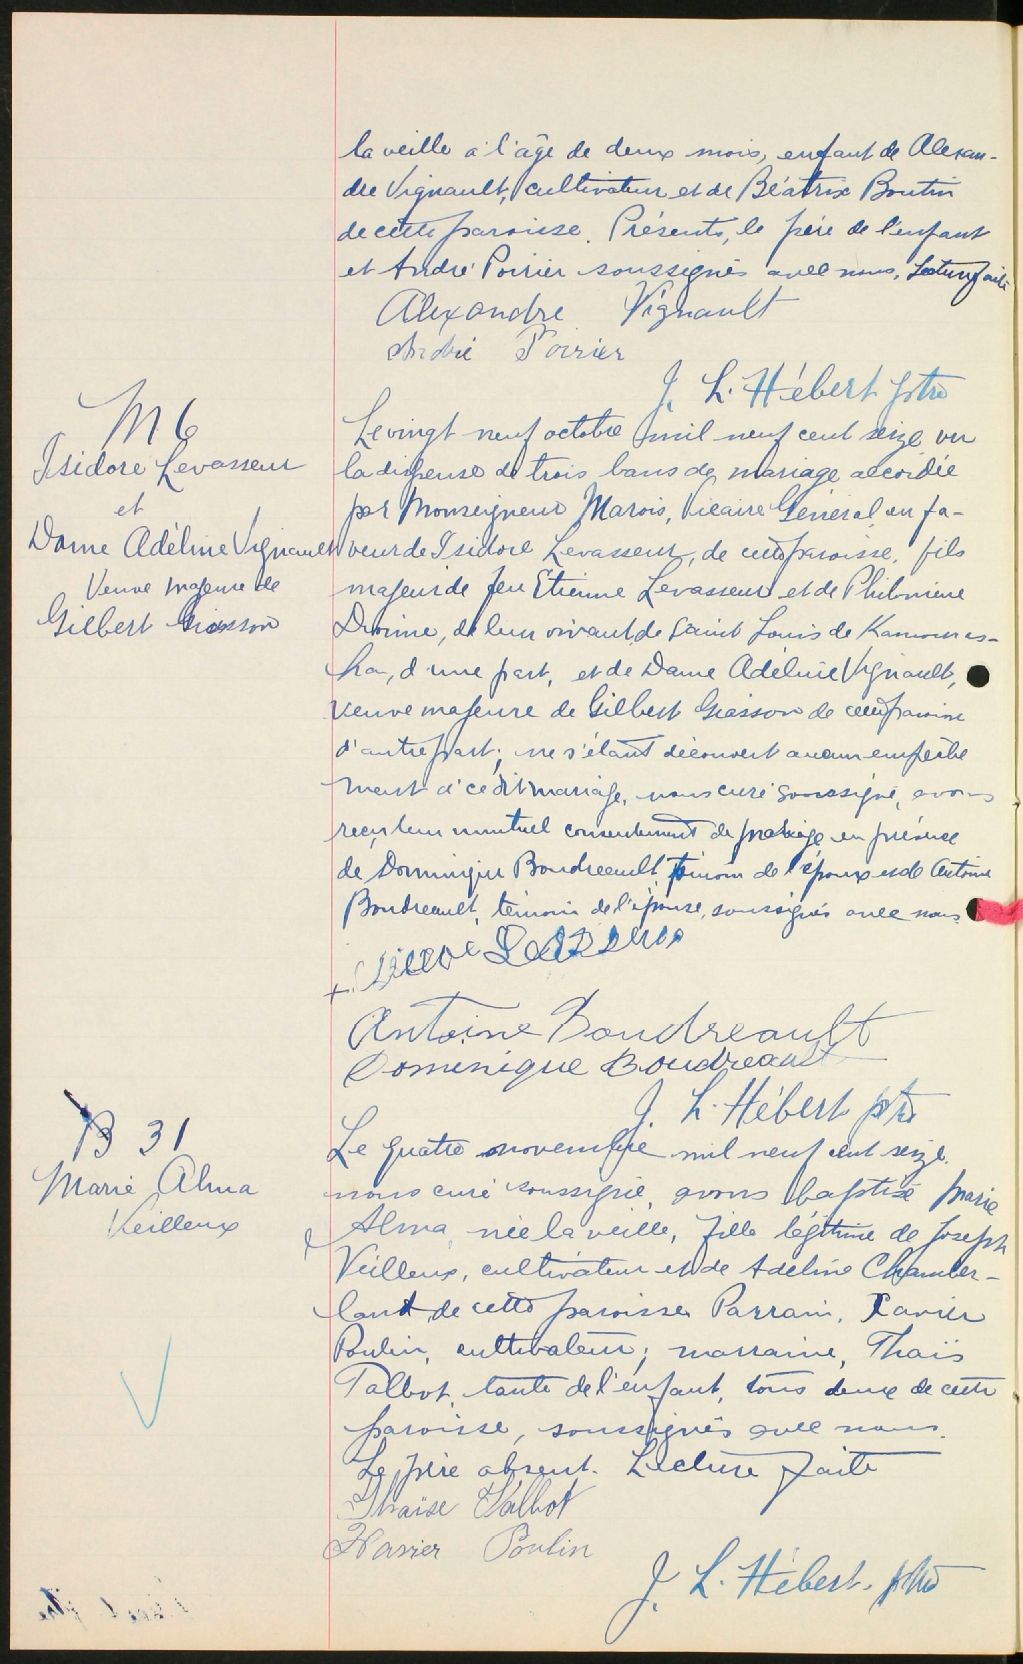 la veille à l'âge de deux mois, enfant de Alexan-
dre Vignault, cultivateur et de Béatrix Boutin
de cette paroisse. Présents, le père de l'enfant
et André Poirier soussignés avec nous. Lecture faite
Alexandre Vignault
André Poirier
J. L. Hébert ptre
M 6
Isidore Levasseur
et
Dame Adéline Vignault
Veuve majeure de
Gilbert Giasson
Le vingt neuf octobre mil neuf cent seize vu
la dispense de trois bans de mariage accordée
par Monseigneur Marois, Vicaire Général en fa-
veur de Isidore Levasseur, de cette paroisse, fils
majeur de feu Etienne Levasseur et de Philomène
Dionne, de leur vivant de Saint Louis de Kamouras-
ka, d'une part, et de Dame Adéline Vignault,
veuve majeure de Gilbert Giasson de cette paroisse
d'autre part; ne s'étant découvert aucun empêche
ment à ce dit mariage, nous curé soussigné, avons
reçu leur mutuel consentement de mariage en présence
de Dominique Boudreault témoin de l'époux et de Antoine
Boudreault, témoin de l'épouse, soussignés avec nous
Antoine Boudreault
Dominique Boudreault
J. L. Hébert ptre
B 31
Marie Alma
Veilleux
Le quatre novembre mil neuf cent seize.
nous curé soussigné, avons baptisé Marie
Alma, née la veille, fille légitime de Joseph
Veilleux, cultivateur et de Adéline Chamber-
land de cette paroisse. Parrain, Xavier
Poulin, cultivateur; marraine, Thaïs
Talbot, tante de l'enfant, tous deux de cette
paroisse, soussignés avec nous.
Le père absent. Lecture faite
Thaïse Talbot
Xavier Poulin
J. L. Hébert. ptre